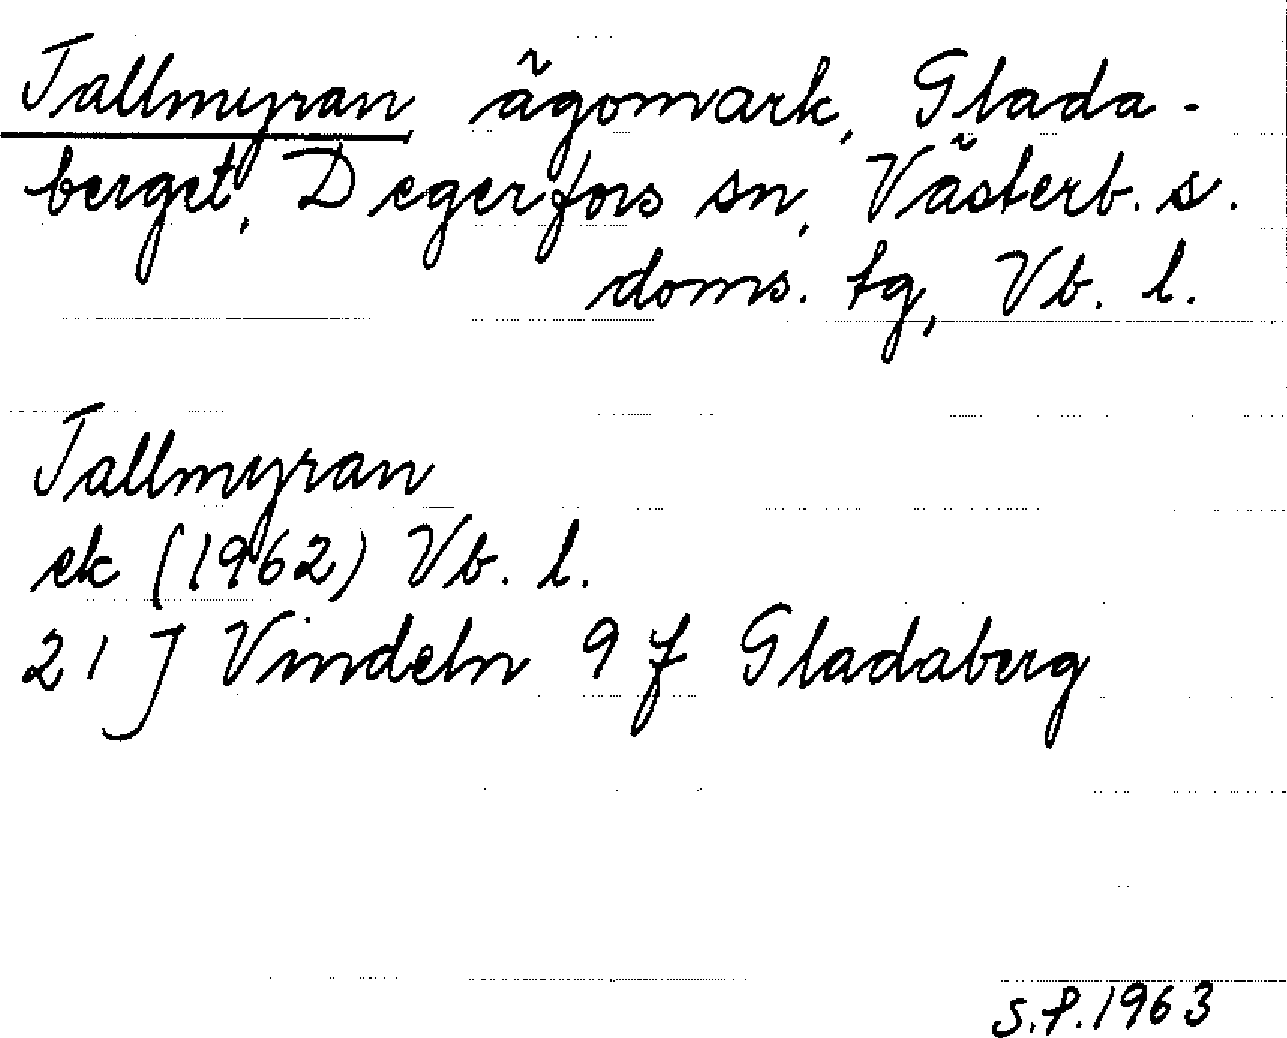 Tallmyran ägomark, Glada-
berget, Degerfors sn, Västerb. s.
doms. tg, Vb. l.
Tallmyran
ek (1962) Vb. l.
21 J Vindeln 9 f Gladaberg
S.P. 1963